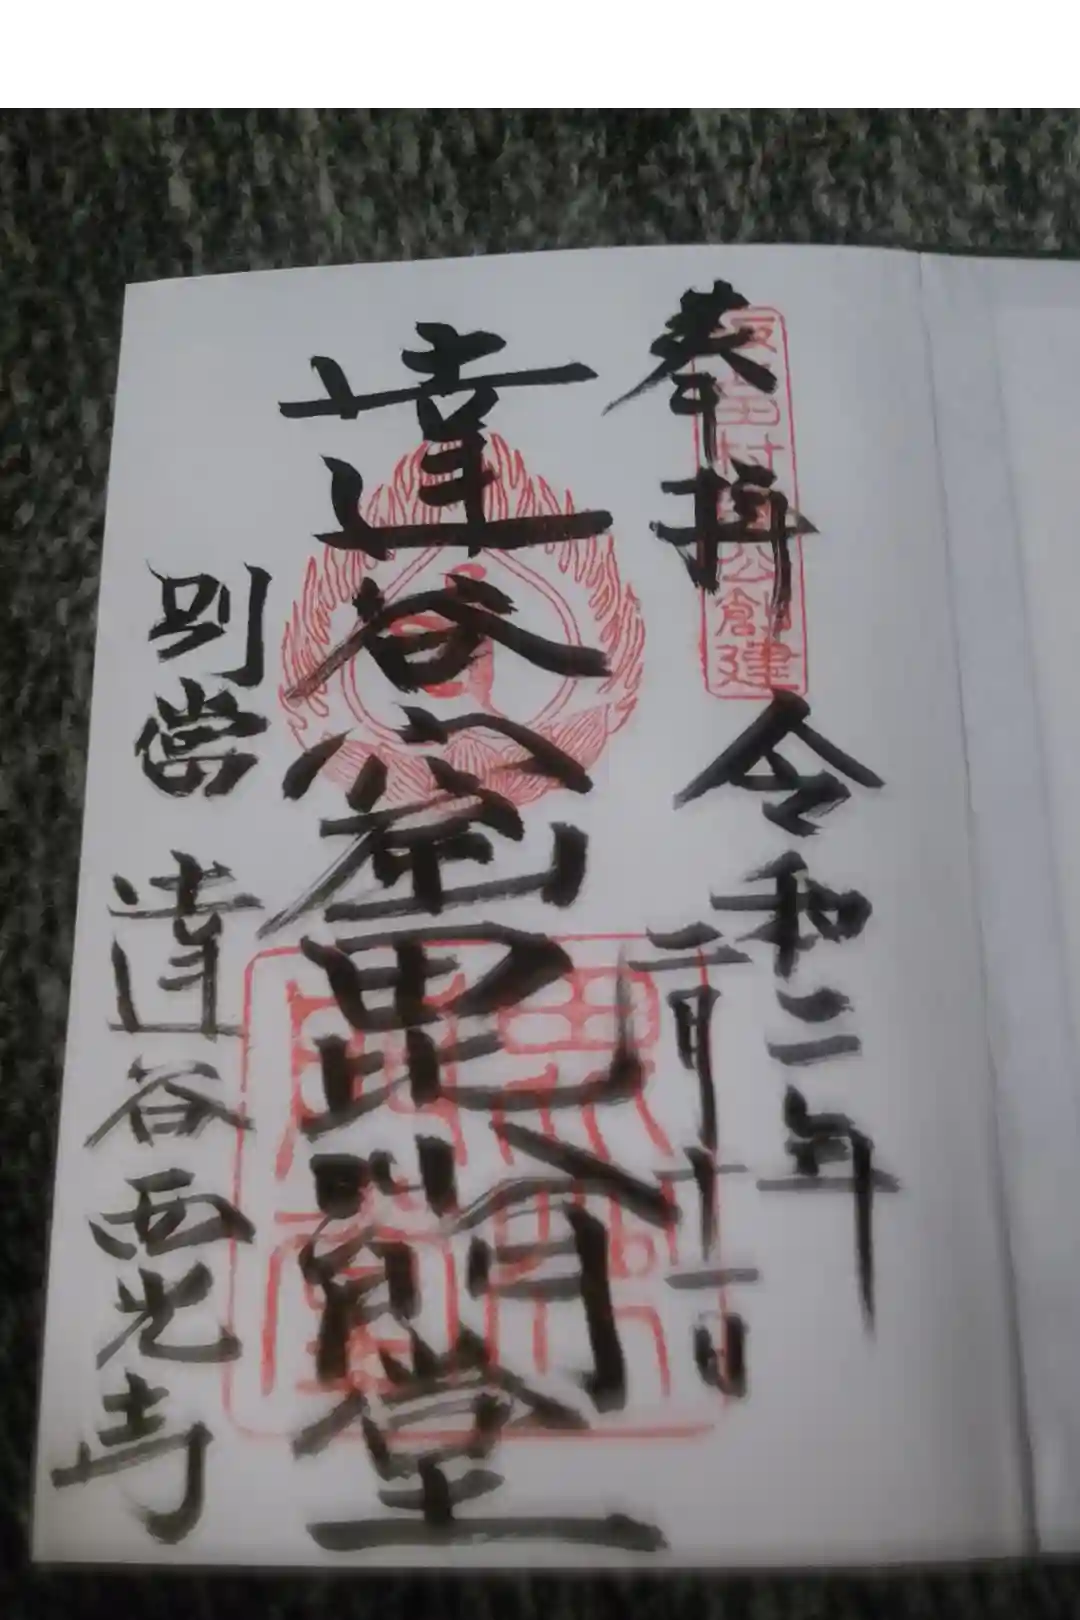 奉拝
坂上田村麿公創建
令和二年
二月十一日
達谷窟毘沙門堂
別當
達谷西光寺